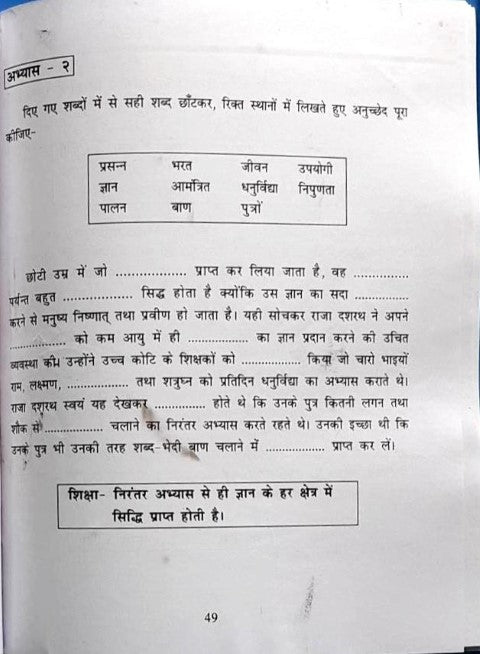 अभ्यास - २
दिए गए शब्दों में से सही शब्द छाँटकर, रिक्त स्थानों में लिखते हुए अनुच्छेद पूरा
कीजिए-
प्रसन्न भरत जीवन उपयोगी
ज्ञान आमंत्रित धनुर्विद्या निपुणता
पालन बाण पुत्रों
छोटी उम्र में जो .................. प्राप्त कर लिया जाता है, वह ..............
पर्यन्त बहुत .................. सिद्ध होता है क्योंकि उस ज्ञान का सदा ..............
करने से मनुष्य निष्णात् तथा प्रवीण हो जाता है। यही सोचकर राजा दशरथ ने अपने
.............. को कम आयु में ही ................ का ज्ञान प्रदान करने की उचित
व्यवस्था की। उन्होंने उच्च कोटि के शिक्षकों को ............... किया जो चारो भाइयों
राम, लक्ष्मण, ................ तथा शत्रुघ्न को प्रतिदिन धनुर्विद्या का अभ्यास कराते थे।
राजा दशरथ स्वयं यह देखकर ............. होते थे कि उनके पुत्र कितनी लगन तथा
शौक से ............... चलाने का निरंतर अभ्यास करते रहते थे। उनकी इच्छा थी कि
उनके पुत्र भी उनकी तरह शब्द-भेदी बाण चलाने में ............... प्राप्त कर लें।
शिक्षा- निरंतर अभ्यास से ही ज्ञान के हर क्षेत्र में
सिद्धि प्राप्त होती है।
49